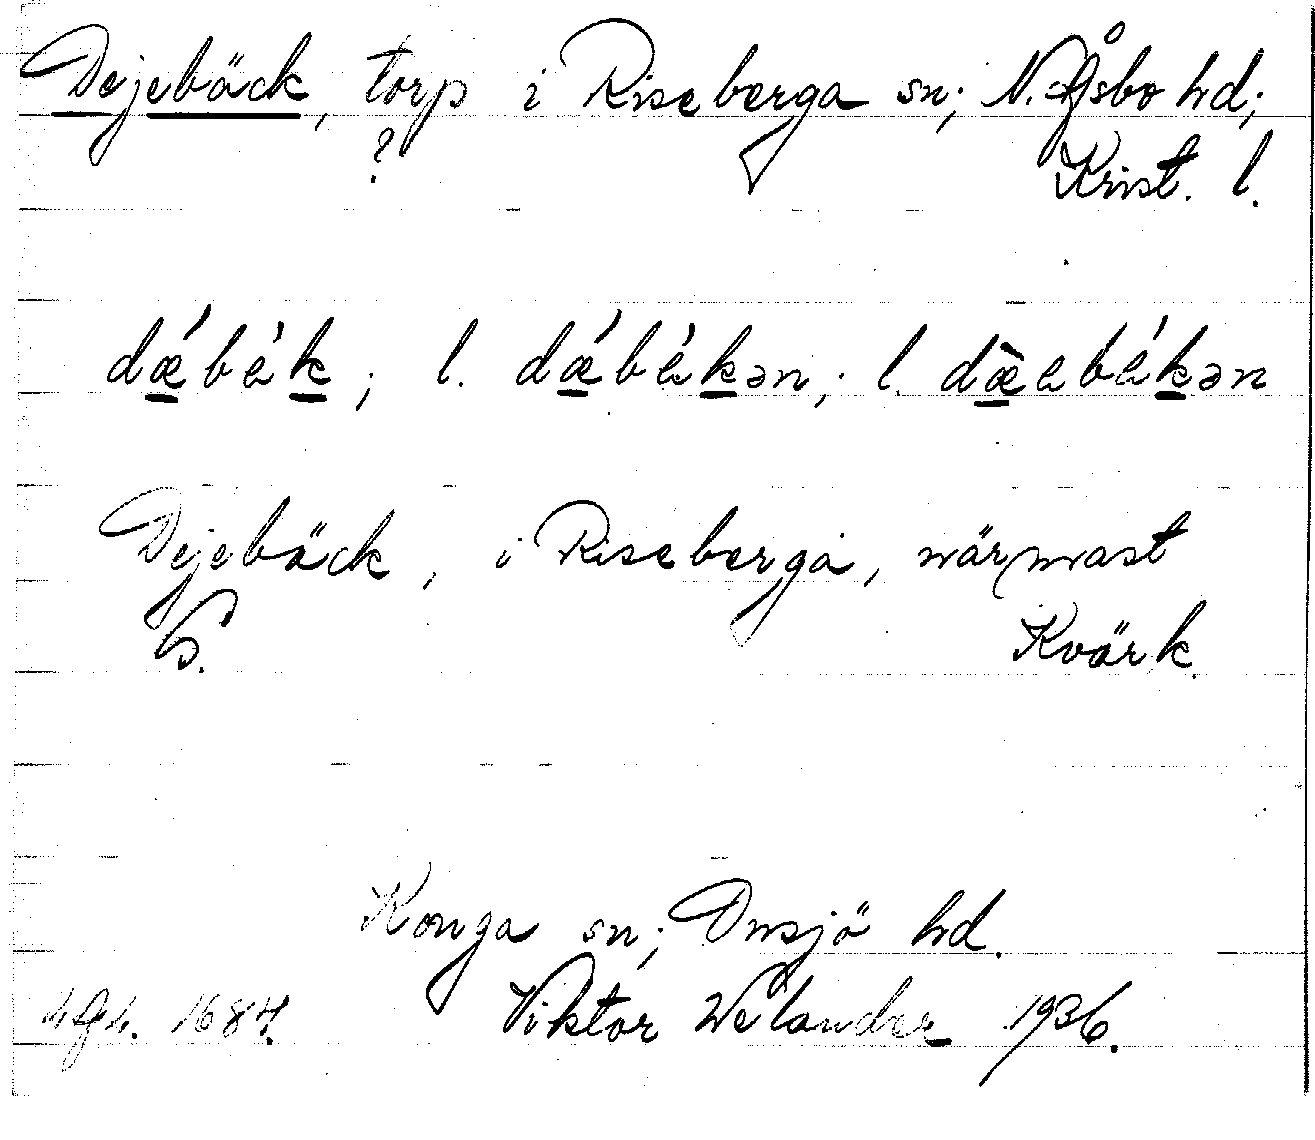 Dejebäck, torp i Riseberga sn; N. Åsbo hd;
?
Krist. l.
dǽbèk; l. dǽbèkən; l. dæ̀ebékən
Dejebäck, i Riseberga, närmast
Kvärk.
Konga sn; Onsjö hd.
1684. Viktor Welander 1936.